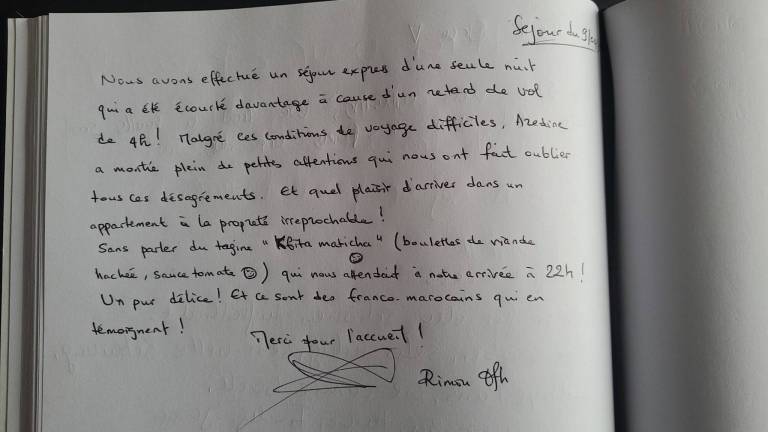 Séjour du 9/
Nous avons effectué un séjour expres d'une seule nuit
qui a été écourté davantage à cause d'un retard de vol
de 4h ! Malgré ces conditions de voyage difficiles, Azedine
a montré plein de petites attentions qui nous ont fait oublier
tous ces désagréments. Et quel plaisir d'arriver dans un
appartement à la propreté irréprochable !
Sans parler du tagine "Kfita maticha" (boulettes de viande
hachée, sauce tomate ☺) qui nous attendait à notre arrivée à 22h !
Un pur délice ! Et ce sont des franco-marocains qui en
témoignent !
Merci pour l'accueil !
Rimou